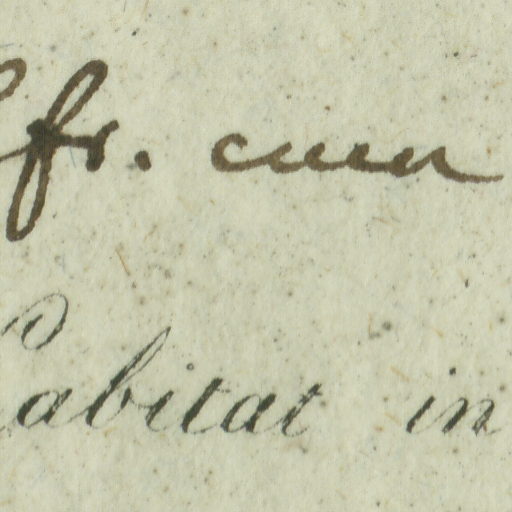 fr. cum
Habitat in